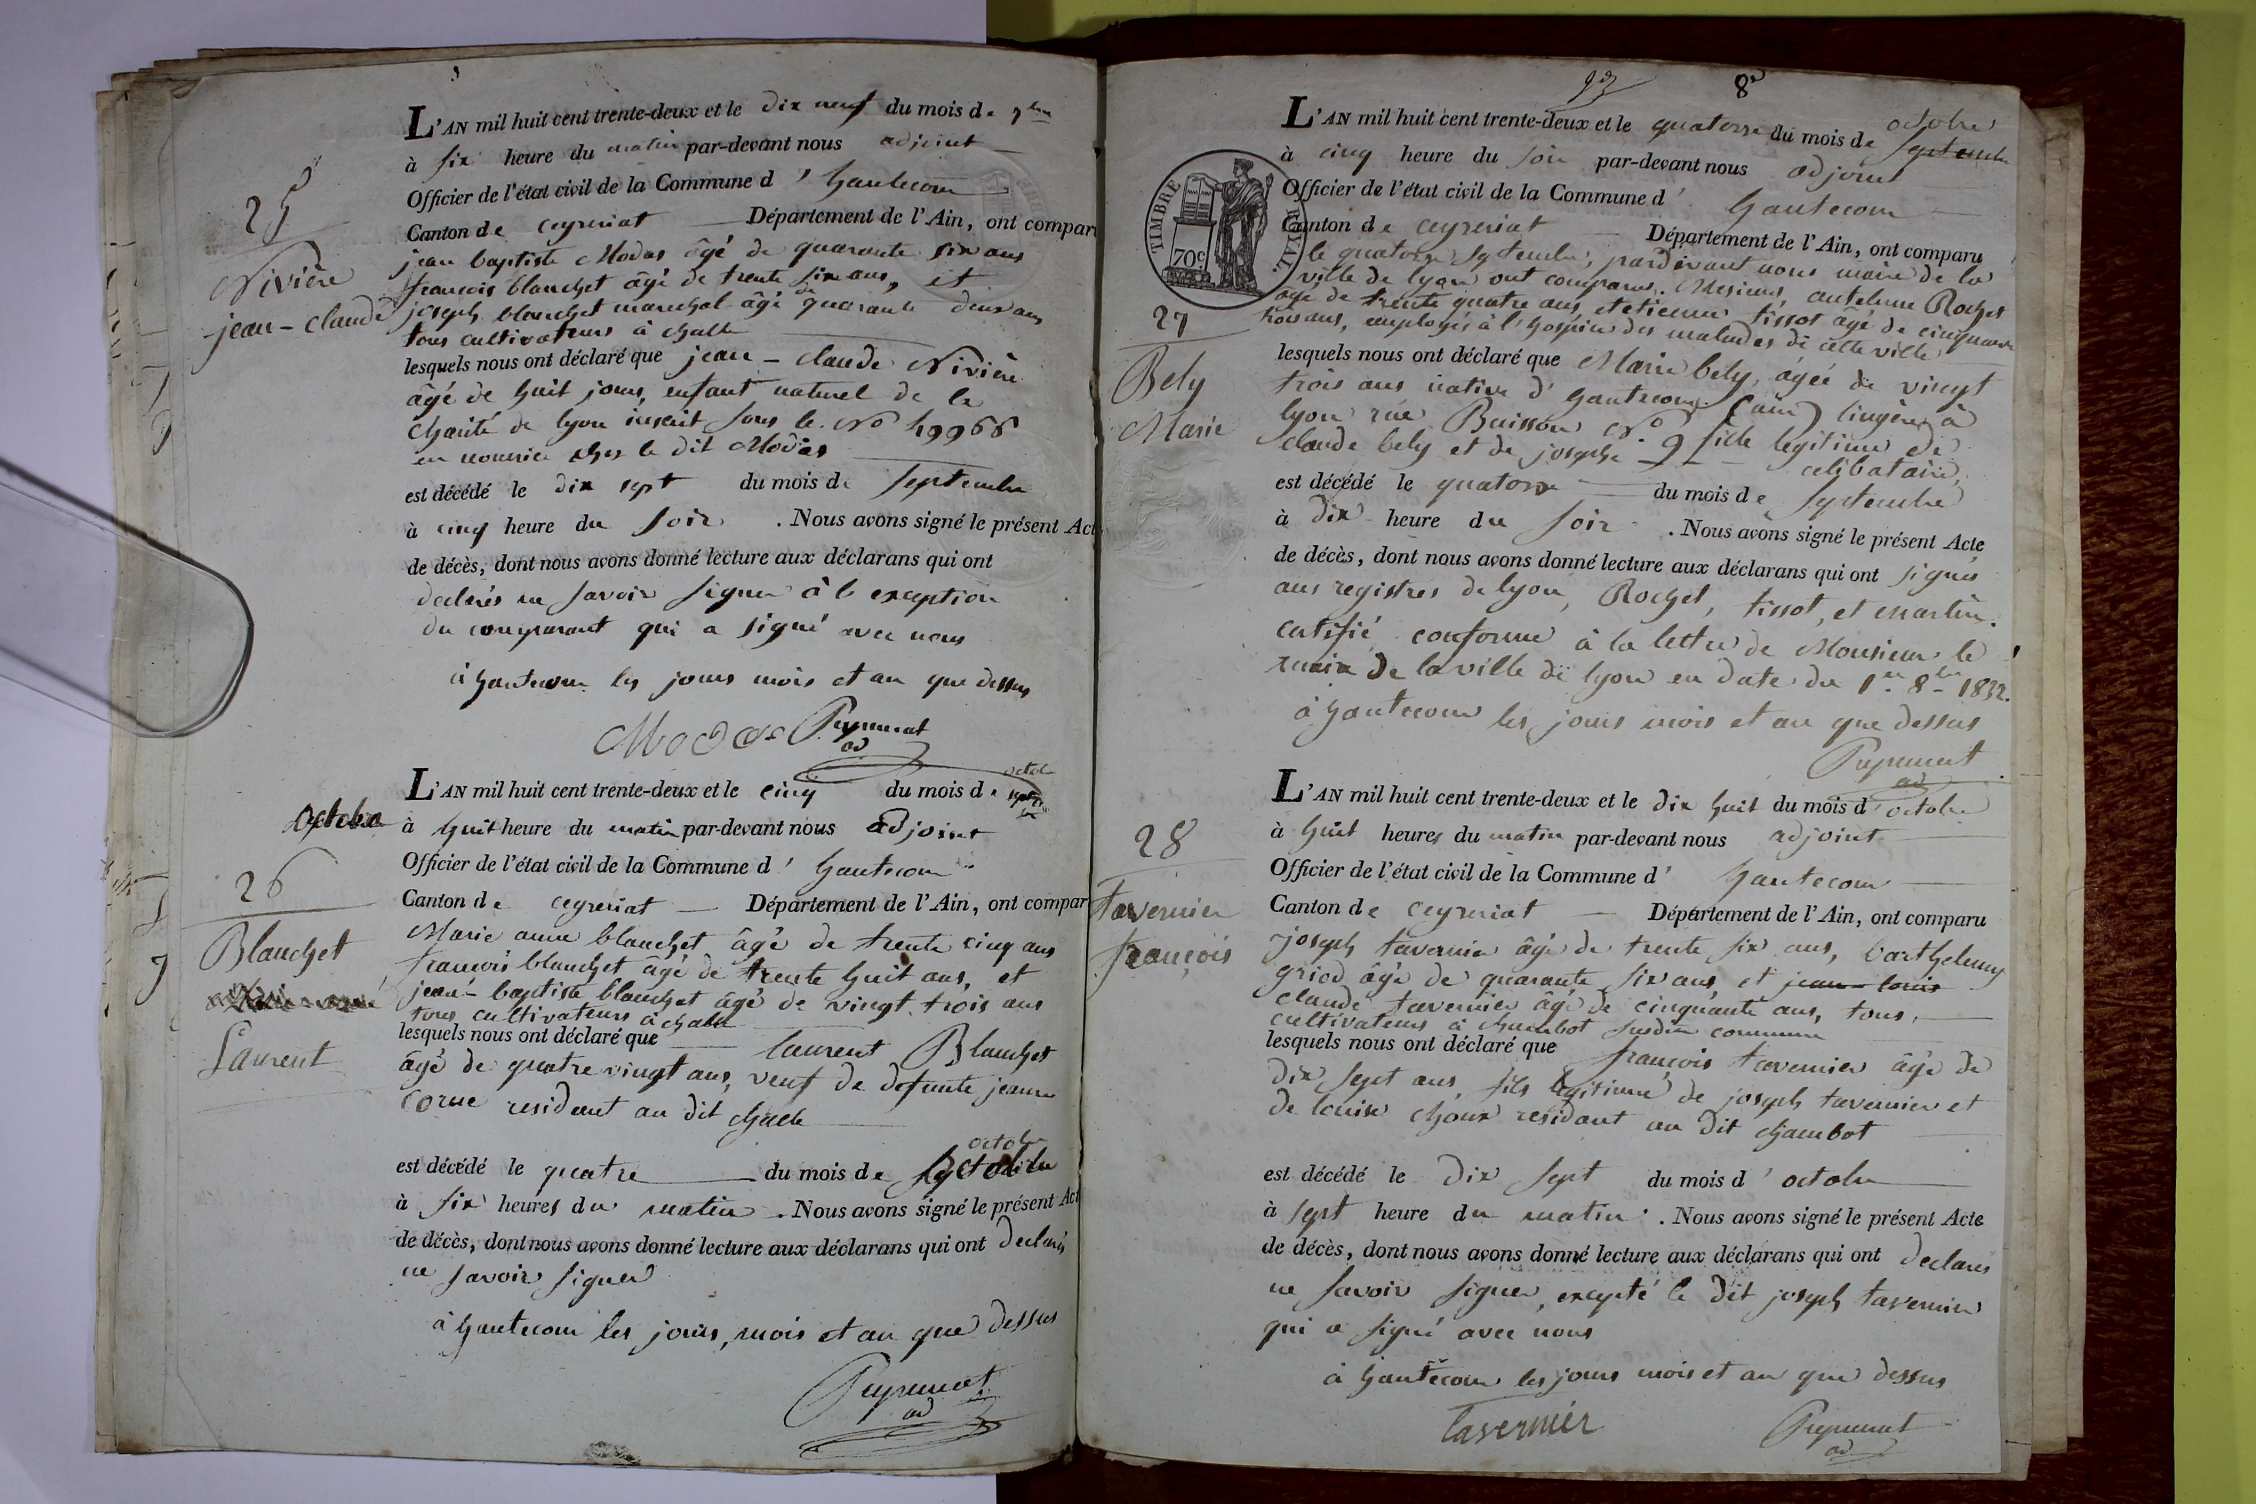 L'AN mil huit cent trente-deux et le dix neuf du mois de 7bre
à six heure du matin par-devant nous adjoint
Officier de l'état civil de la Commune d' hautecour
Canton de ceyzeriat Département de l'Ain, ont compar
25
jean baptiste Modas âgé de quarante six ans
françois blanchet âgé de trente six ans, et
joseph blanchet marechal âgé de quarante deux ans
tous cultivateurs à challe
Nivière
jean-claude
lesquels nous ont déclaré que jean-claude Nivière
âgé de huit jours, enfant naturel de la
charité de lyon inscrit sous le No 49966
en nourrice chez le dit Modas
est décédé le dix sept du mois de septembre
à cinq heure du soir . Nous avons signé le présent Act
de décès, dont nous avons donné lecture aux déclarans qui ont
declarés ne savoir signer à le exception
du comparant qui a signé avec nous
à hautecour les jours mois et an que dessus
Modas
ad
L'AN mil huit cent trente-deux et le cinq du mois d octob
octobre
à huit heure du matin par-devant nous adjoint
Officier de l'état civil de la Commune d' hautecour
26
Canton de ceyzeriat Département de l'Ain, ont compar
Marie anne blanchet âgé de trente cinq ans
françois blanchet âgé de trente huit ans, et
jean-baptiste blanchet âgé de vingt trois ans
tous cultivateurs à challe
Blanchet
Laurent
lesquels nous ont déclaré que laurent Blanchet
âgé de quatre vingt ans, veuf de defunte jeanne
corue resident au dit challe
octobre
est décédé le quatre du mois de
à six heures du matin . Nous avons signé le présent Act
de décès, dont nous avons donné lecture aux déclarans qui ont declarés
ne savoir signer
à hautecour les jours, mois et an que dessus
ad
8e
L'AN mil huit cent trente-deux et le quatorze du mois de octobre septembre
à cinq heure du soir par-devant nous adjoint
Officier de l'état civil de la Commune d' hautecour
Canton de ceyzeriat Département de l'Ain, ont comparu
TIMBRE ROYAL.
70c
le quatorze septembre, pardevant nous maire de la
ville de lyon ont comparus. Mesieurs, antelme Rochet
âgé de trente quatre ans, et etienne tissot âgé de cinquante
trois ans, employés à l'hospice des malades de cette ville
27
Bely
Marie
lesquels nous ont déclaré que Marie bely, âgée de vingt
trois ans native d'hautecour (ain) lingère à
lyon rue Buisson No. 9 fille legitime de
claude bely et de josephe celibataire,
est décédé le quatorze du mois de septembre
à dix heure du soir . Nous avons signé le présent Acte
de décès, dont nous avons donné lecture aux déclarans qui ont signés
aus registres de lyon, Rochet, tissot, et martin.
certifié conforme à la lettre de Monsieur le
maire de la ville de lyon en date du 1er 8bre 1832.
à hautecour les jours mois et an que dessus
ad
L'AN mil huit cent trente-deux et le dix huit du mois d'octobre
à huit heures du matin par-devant nous adjoint
Officier de l'état civil de la Commune d' hautecour
Canton de ceyzeriat Département de l'Ain, ont comparu
28
tavernier
françois
joseph tavernier âgé de trente six ans, barthelemy
griod âgé de quarante six ans, et jean-louis
claude tavernier âgé de cinquante ans, tous
cultivateurs à chambot susdite commune
lesquels nous ont déclaré que françois tavernier âgé de
dix sept ans, fils legitime de joseph tavernier et
de louise choux residant au dit chambot
est décédé le dix sept du mois d'octobre
à sept heure du matin . Nous avons signé le présent Acte
de décès, dont nous avons donné lecture aux déclarans qui ont declarés
ne savoir signer, excepté le dit joseph tavernier
qui a signé avec nous
à hautecour les jours mois et an que dessus
tavernier
ad